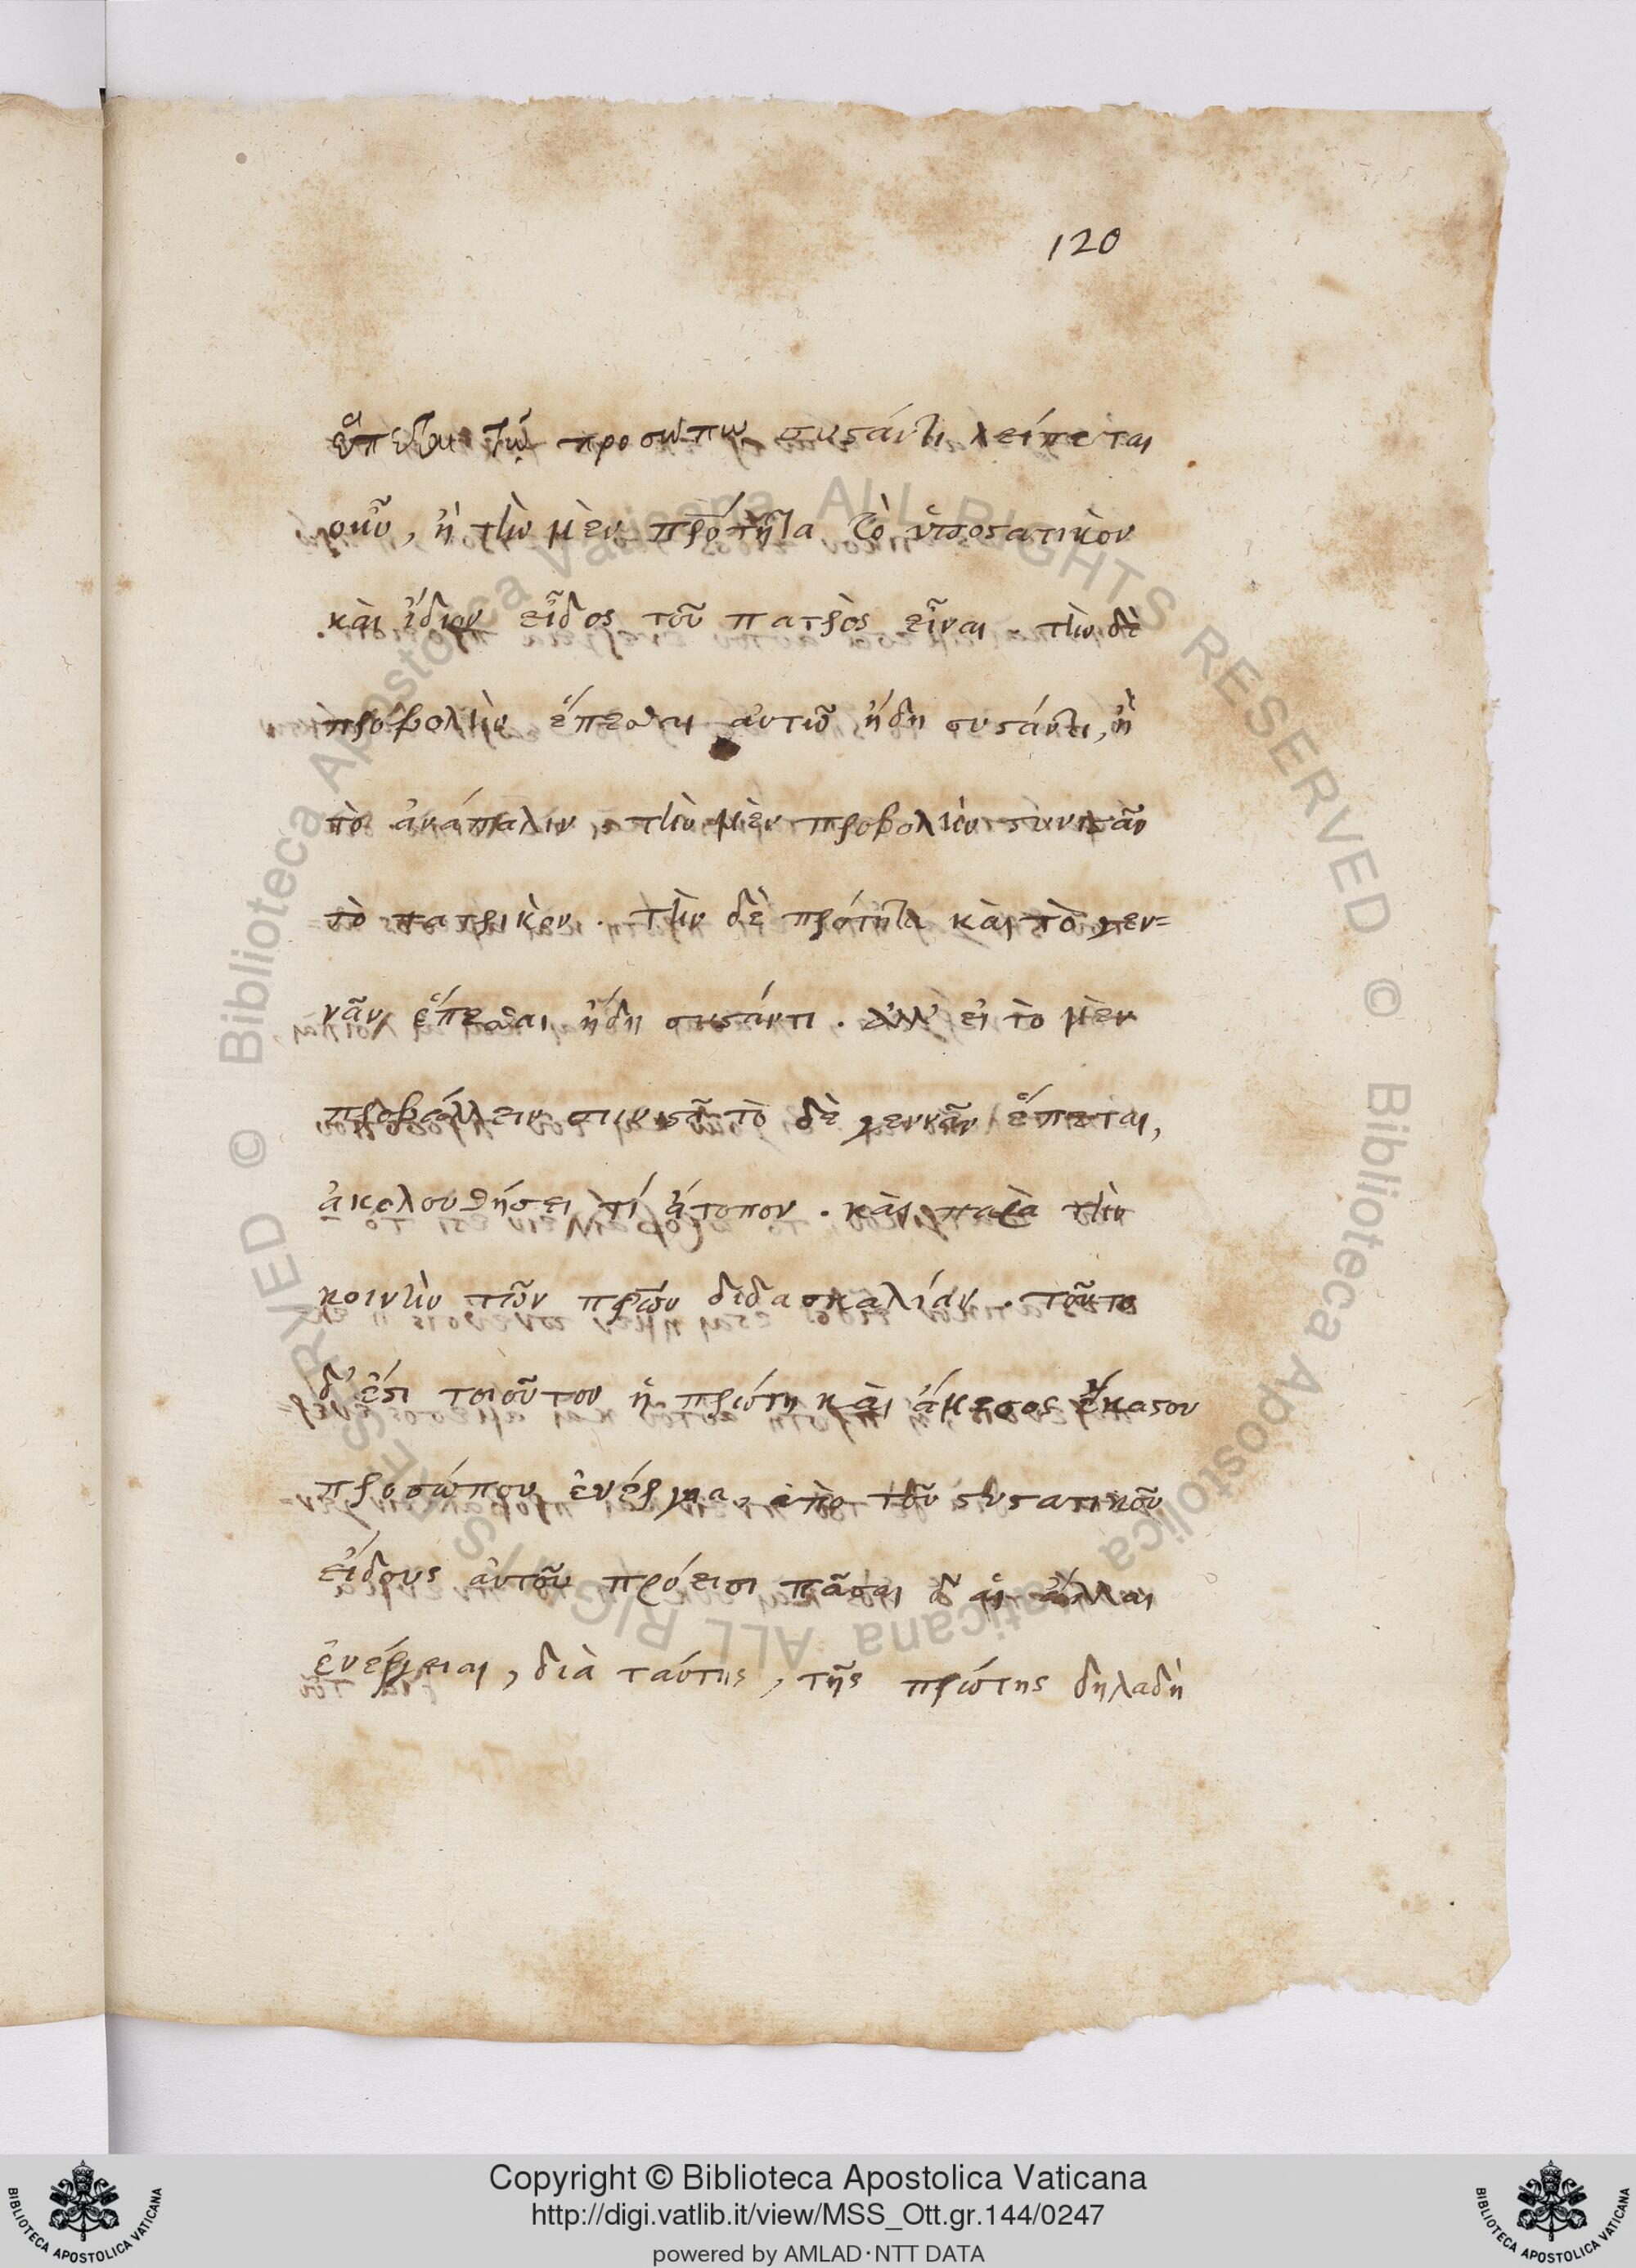 120
ἕπεσθαι τῷ προσώπῳ συστάντι λείπεται
οὖν, ἢ τὴν μὲν πρότητα τὸ ὑποστατικὸν
καὶ ἴδιον εἶδος τοῦ πατρὸς εἶναι. τὴν δὲ
προβολὴν ἕπεσθαι αὐτῷ ἤδη συστάντι, ἢ
τὸ ἀνάπαλιν, τὴν μὲν προβολὴν συνιστᾶν
τὸ πατρικὸν. τὴν δὲ πρότητα καὶ τὸ γεν=
νᾶν ἕπεσθαι ἤδη συστάντι. ἀλλ' εἰ τὸ μὲν
προβάλλειν συνιστᾶ τὸ δὲ γεννᾶν ἕπεται,
ἀκολουθήσει τί ἄτοπον. καὶ παρὰ τὴν
κοινὴν τῶν πρων διδασκαλίαν. τοῦτο
δ' ἐστι τοιοῦτον ἡ πρώτη καὶ ἄμεσος ἑκάστου
προσώπου ἐνέργεια, ἀπὸ τοῦ συστατικοῦ
εἴδους αὐτοῦ πρόεισι πᾶσαι δ' αἱ ἄλλαι
ἐνέργειαι, διὰ ταύτης, τῆς πρώτης δηλαδὴ
Copyright © Biblioteca Apostolica Vaticana
http://digi.vatlib.it/view/MSS_Ott.gr.144/0247
powered by AMLAD·NTT DATA
BIBLIOTECA APOSTOLICA VATICANA
BIBLIOTECA APOSTOLICA VATICANA
© Biblioteca Apostolica Vaticana ALL RIGHTS RESERVED
© Biblioteca Apostolica Vaticana ALL RIGHTS RESERVED